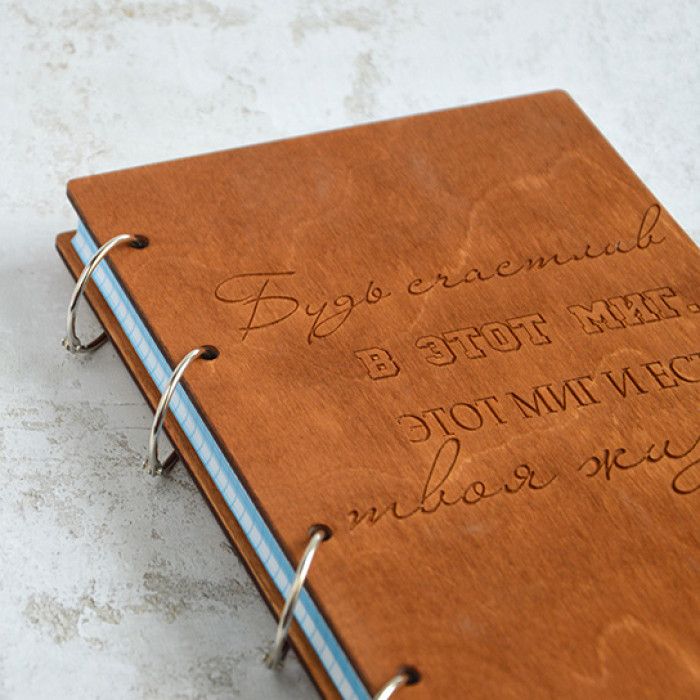 Будь счастлив
В ЭТОТ МИГ.
ЭТОТ МИГ И ЕС
твоя жиз